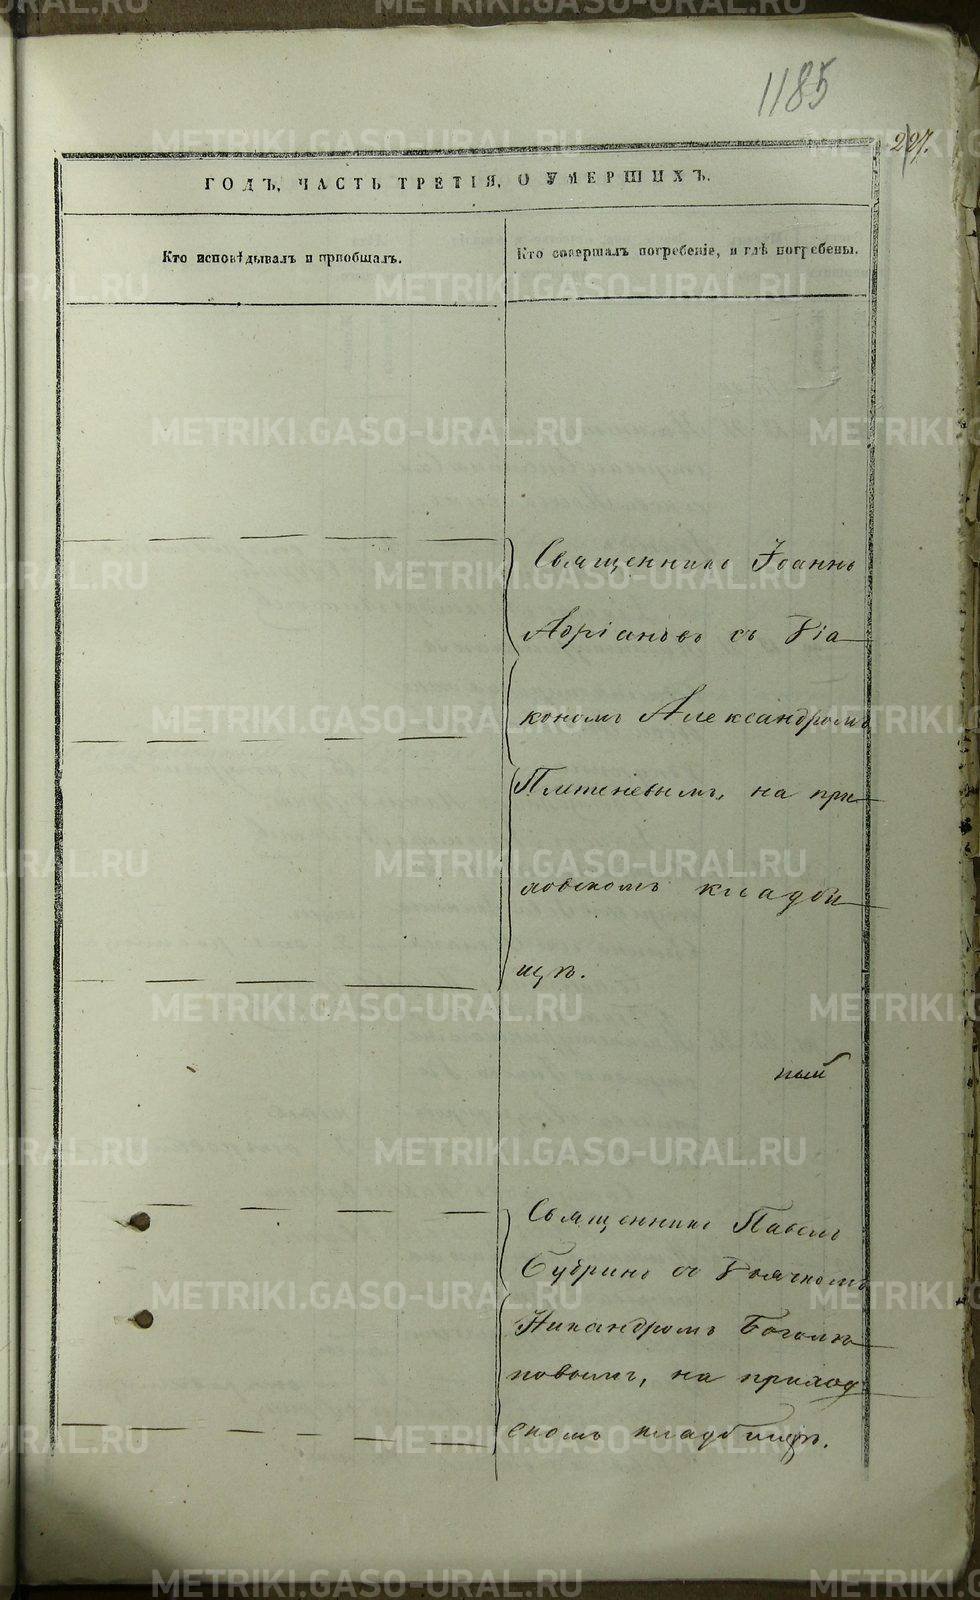 1185
227.
ГОДЪ, ЧАСТЬ ТРЕТІЯ, О УМЕРШИХЪ.
Кто исповѣдывалъ и пріобщалъ.
Кто совершалъ погребеніе, и гдѣ погребены.
Священникъ Іоаннъ
Адріановъ съ Діа
кономъ Александромъ
Плетеневымъ, на при
ходскомъ кладби
щѣ.
ный
Священникъ Павелъ
Бубринъ съ Дьячкомъ
Никандромъ Боголѣ
повымъ, на приход
скомъ кладбищѣ.
METRIKI.GASO-URAL.RU